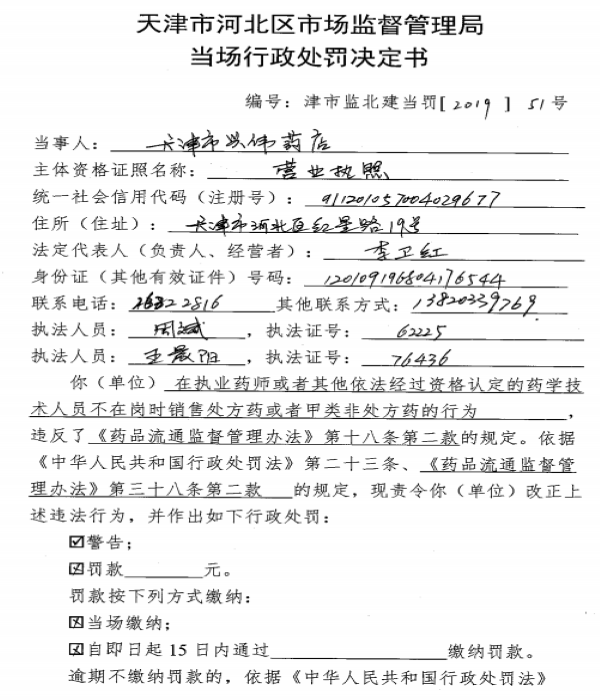 天津市河北区市场监督管理局
当场行政处罚决定书
编号：津市监北建当罚[ 2019 ] 51号
当事人： 天津市兴伟药店
主体资格证照名称： 营业执照
统一社会信用代码（注册号）： 911201057004029677
住所（住址）： 天津市河北区红星路19号
法定代表人（负责人、经营者）： 李卫红
身份证（其他有效证件）号码： 120109196804176544
联系电话： 26322816 其他联系方式： 13820339769
执法人员： 周斌 ，执法证号： 62225
执法人员： 王晨阳 ，执法证号： 76436
你（单位）在执业药师或者其他依法经过资格认定的药学技
术人员不在岗时销售处方药或者甲类非处方药的行为 ，
违反了《药品流通监督管理办法》第十八条第二款的规定。依据
《中华人民共和国行政处罚法》第二十三条、《药品流通监督管
理办法》第三十八条第二款 的规定，现责令你（单位）改正上
述违法行为，并作出如下行政处罚：
☑警告；
☑罚款________元。
罚款按下列方式缴纳：
☑当场缴纳；
☑自即日起 15 日内通过__________________缴纳罚款。
逾期不缴纳罚款的，依据《中华人民共和国行政处罚法》